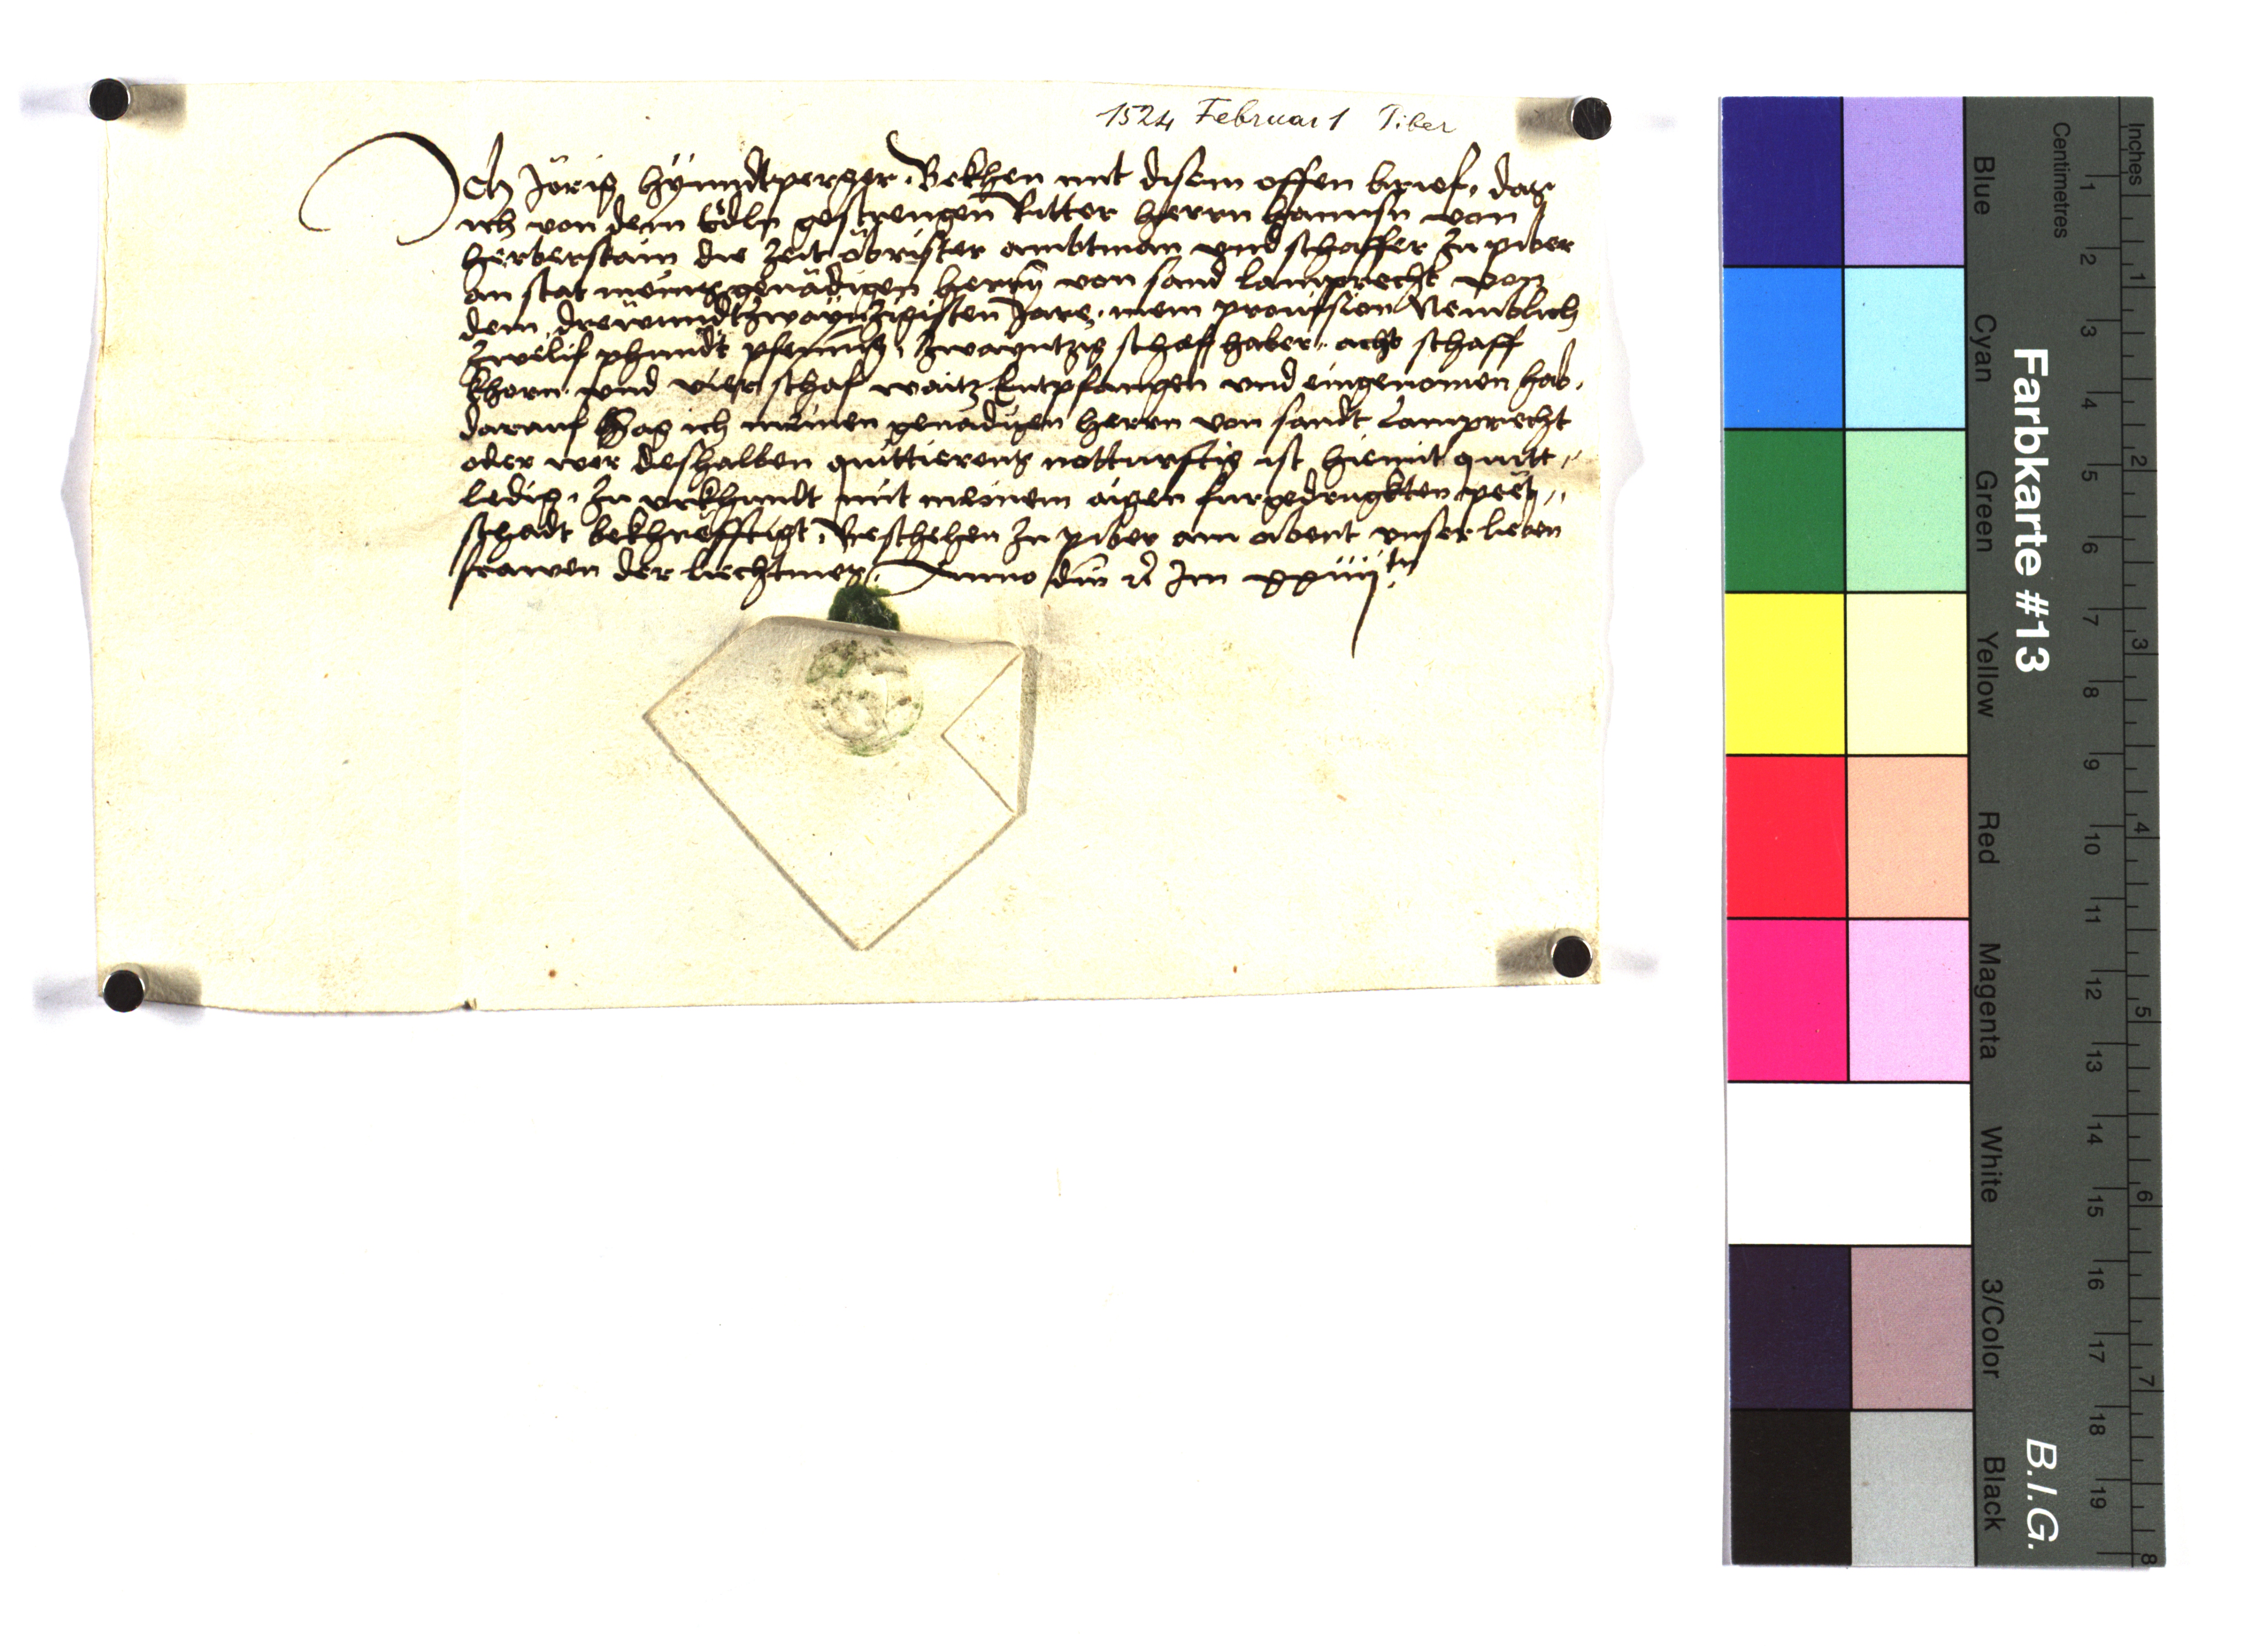 1524 Februar 1 Piber
Ich Jörig hÿnndtperger. Bekhen mit disem offen brief, das
ich von dem Edln gestrengen Ritter herrn hannsn von
herberstain die Zeit öbrister ambtman vnd schaffer Zu piber
an stat meins genädigen herrn von sand lamprecht von
dem drewundtzwayntzigisten Jare. mein prouision Nemblich
Zwelif phundt pfennig, Zwayntzig schaff haber, acht schaff
khorn vnd vier schaf waitz Entpfangen vnd eingenomen hab,
darauf Sag ich meinen genädigen herrn von sandt Lamprecht
oder wer deshalben quittierens notturftig ist hiemit quitt,,
ledig, Zu vrkhundt mit meinem aigen furgedrugkten pet,,
schadt bekhrefftigt, Beschehen Zu piber am abent vnser lieben
frawen der liechtmes, Anno dm̄ 2c Im xxiiijtn
Farbkarte #13
B.I.G.
Inches
Centimetres
1 2 3 4 5 6 7 8
1 2 3 4 5 6 7 8 9 10 11 12 13 14 15 16 17 18 19
Blue
Cyan
Green
Yellow
Red
Magenta
White
3/Color
Black